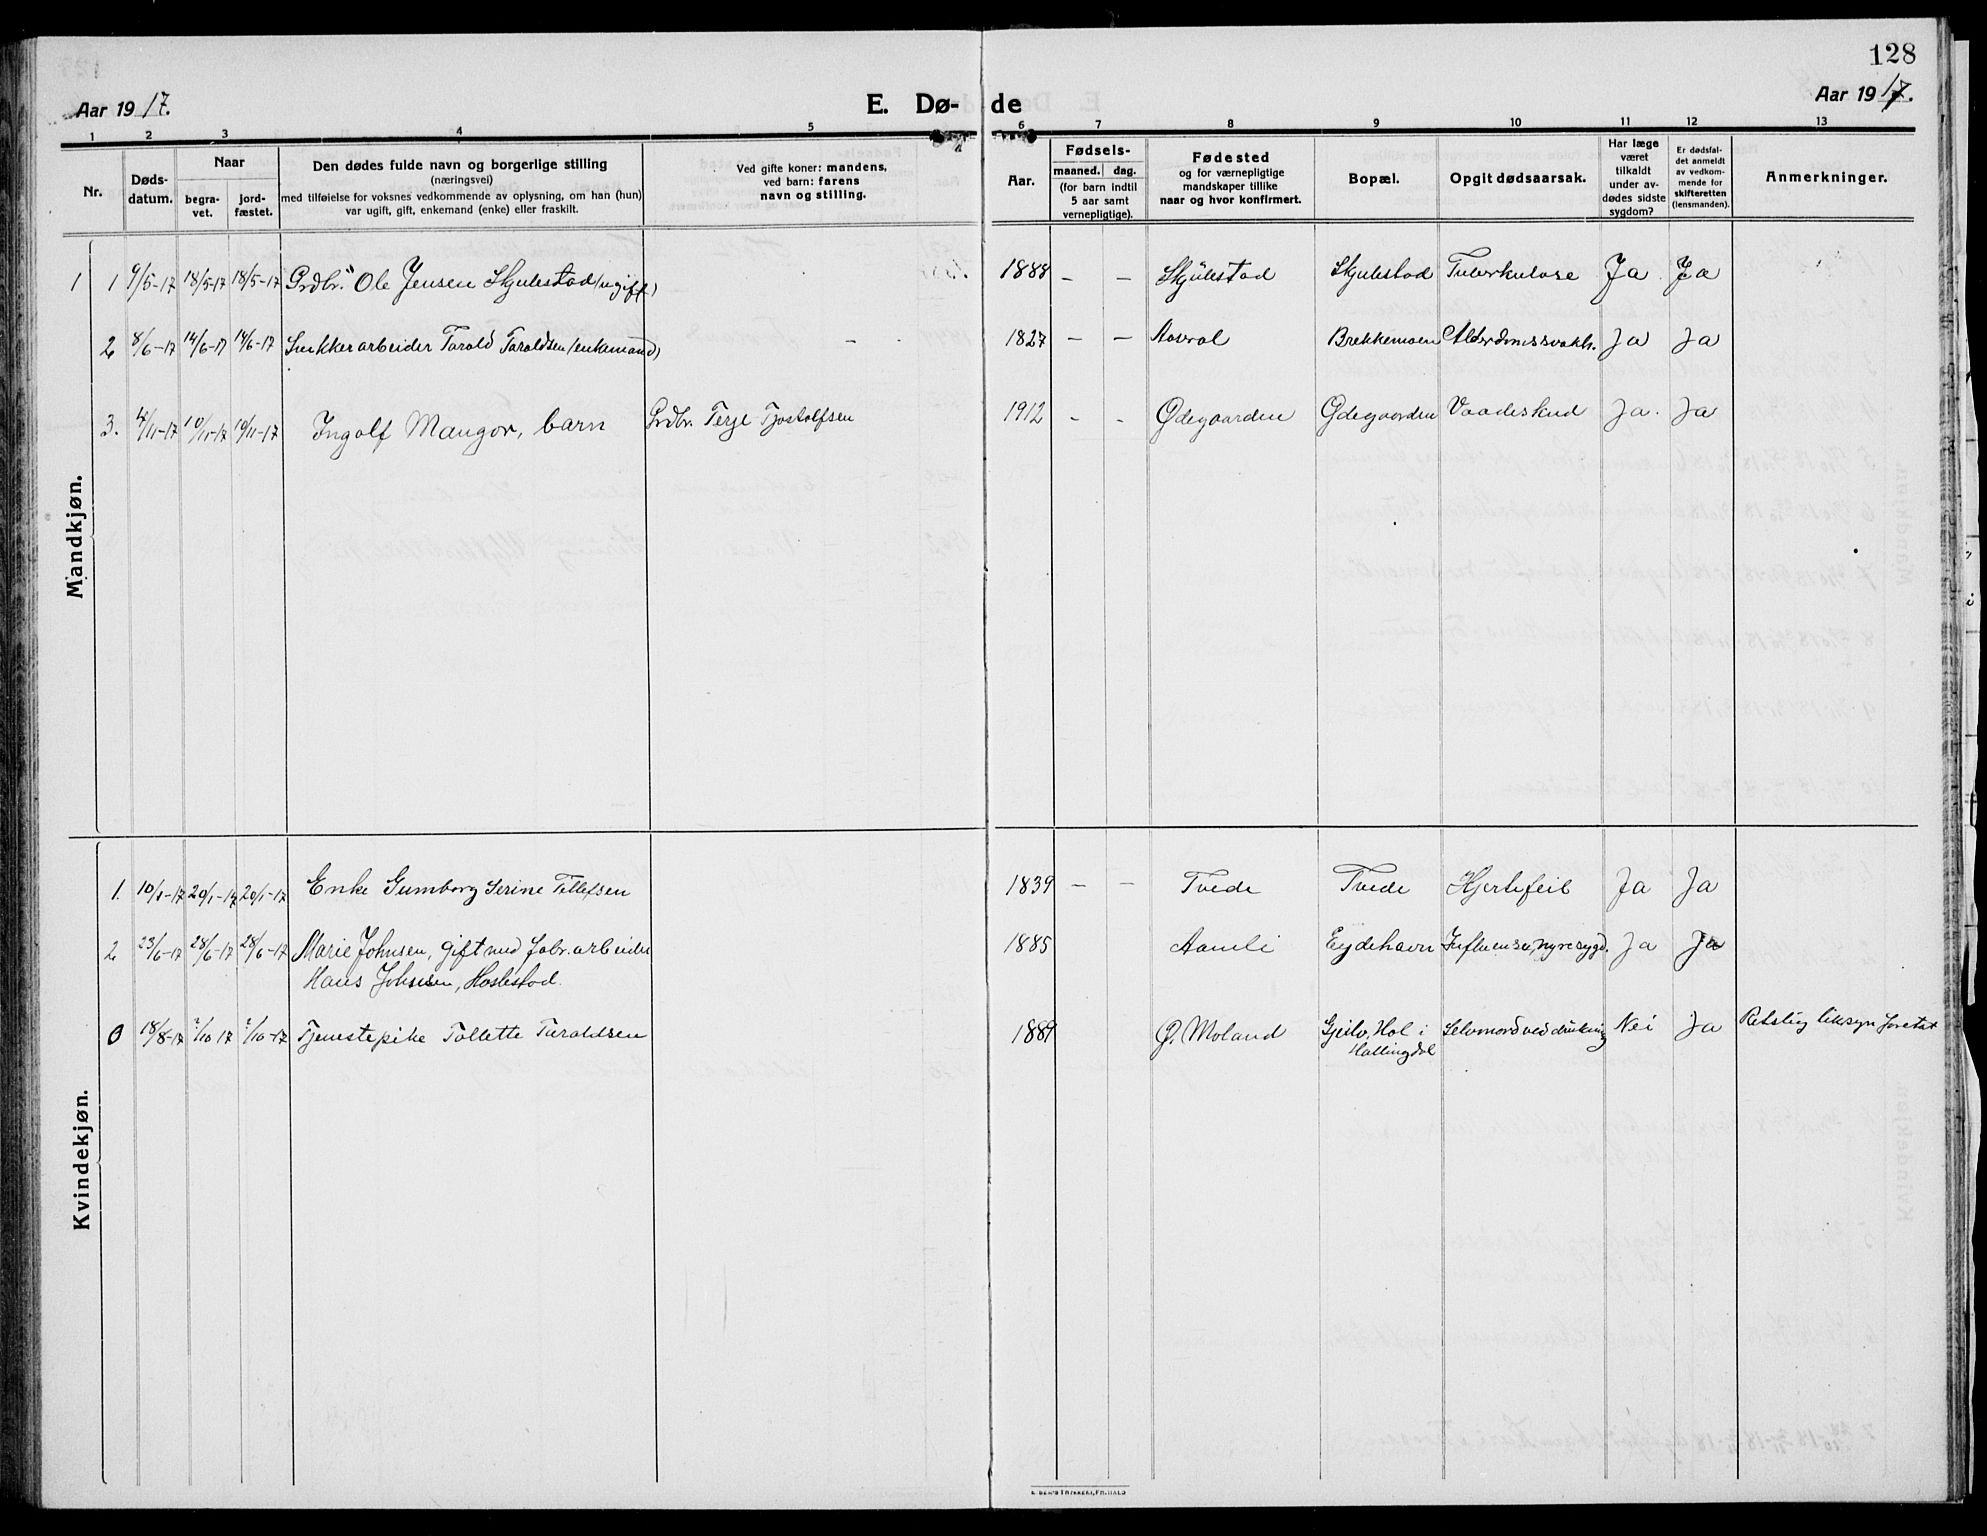 128
Aar 1917. E. Dø- de Aar 1917.
1 2 3 4 5 6 7 8 9 10 11 12 13
Nr.
Døds-
datum.
Naar
begra-
vet.
jord-
fæstet.
Den dødes fulde navn og borgerlige stilling
(næringsvei)
med tilføielse for voksnes vedkommende av oplysning, om han (hun)
var ugift, gift, enkemand (enke) eller fraskilt.
Ved gifte koner: mandens,
ved barn: farens
navn og stilling.
Aar.
Fødsels-
maaned. dag.
(for barn indtil
5 aar samt
vernepligtige).
Fødested
og for værnepligtige
mandskaper tillike
naar og hvor konfirmert.
Bopæl.
Opgit dødsaarsak.
Har læge
været
tilkaldt
under av-
dødes sidste
sygdom?
Er dødsfal-
det anmeldt
av vedkom-
mende for
skifteretten
(lensmanden).
Anmerkninger.
Mandkjøn.
1 1 9/5-17 18/5-17 18/5-17 Grdbr. Ole Jensen Skjulestad (ugift) 1888 – – Skjulestad Skjulestad Tuberkulose Ja Ja
2 8/6-17 14/6-17 14/6-17 Snekkerarbeider Tarald Taraldsen (enkemand) – – 1827 – – Aaseral Brekkemoen Alderdomssvakh. Ja Ja
3. 4/11-17 10/11-17 10/11-17 Ingolf Mangor, barn Grdbr. Terje Tjostolfsen 1912 - - Ødegaarden Ødegaarden Vaadeskud Ja. Ja
Kvindekjøn.
1. 10/1-17 20/1-17 20/1-17 Enke Gumborg Serine Tellefsen 1839 – – Tvede Tvede Hjertefeil Ja Ja
2 23/6-17 28/6-17 28/6-17 Marie Johnsen, gift med fabr.arbeider 1885 Aamli Eydehavn Influensa, nyresygd. Ja Ja
Hans Johnsen,
0 18/8-17 ?/10 17 ?/10-17 Tjenestepike Tallette Taraldsen 1889 Ø. Moland Gjeilo, Hol i Selvmord ved drukning Nei Ja Retslig liksyn foretat
Hallingdal